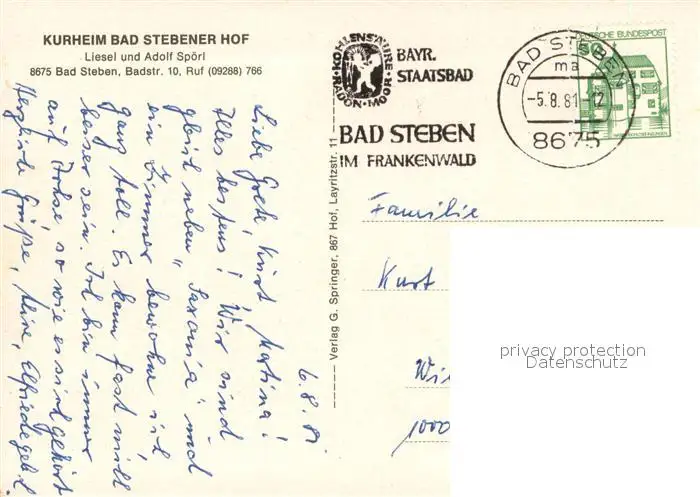 KURHEIM BAD STEBENER HOF
Liesel und Adolf Spörl
8675 Bad Steben, Badstr. 10, Ruf (09288) 766
KOHLENSÄURE · RADON · MOOR
BAYR.
STAATSBAD
BAD STEBEN
IM FRANKENWALD
BAD STEBEN
ma
-5.8.81-12
8675
DEUTSCHE BUNDESPOST
50
6.8.81
Liebe Grete, Kurt, Martina!
Alles bestens! Wir sind
gleich neben "Saxonia" und
ein Zimmer bewohne ich
ganz toll. Es kann fast nicht
besser sein. Ich bin immer
auf Achse, so wie es sich gehört
Herzliche Grüße, Elfriede
Verlag G. Springer, 867 Hof, Layritzstr. 11
Familie
Kurt
1000
privacy protection
Datenschutz